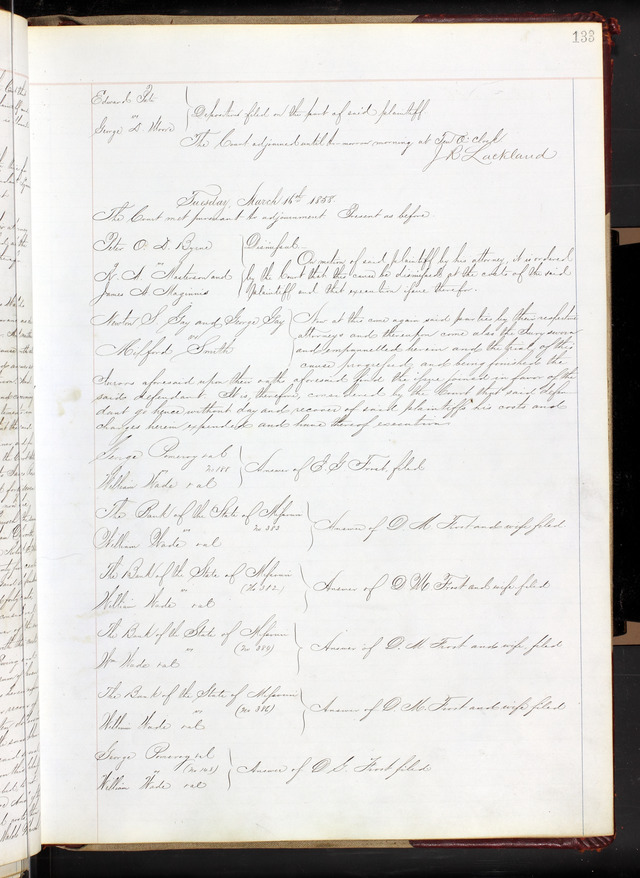 133
Edward
vs
George D. Moore
Deposition filed on the part of said plaintiff
The Court adjourned until to-morrow morning at Ten O'clock
J R Lackland
Tuesday, March 16th 1858.
The Court met pursuant to adjournment Present as before
Peter O. D. Byrne
vs
and
James A Maginnis
Dismissal
On motion of said plaintiff by his attorney, it is ordered
by the Court that this cause be dismissed at the costs of the said
plaintiff and that execution issue therefor.
Newton S. Gay and George Gay
vs
Milford Smith
Now at this come again said parties by their respective
attorneys and thereupon come also the Jury sworn
and empannelled herein and the trial of this
cause progressed, and being finished the
Jurors aforesaid upon their oaths aforesaid find the issue joined in favor of the
said defendant It is, therefore, considered by the Court that said defen-
dant go hence without day and recover of said plaintiffs his costs and
charges herein expended and have thereof execution.
George Pomeroy et al
vs
William Wade et al
Answer of E. G Frost filed
The Bank of the State of Missouri
No 383
William Wade et al
Answer of D. M. Frost and wife filed
The Bank of the State of Missouri
vs (No 382)
William Wade et al
Answer of D. M. Frost and wife filed
The Bank of the State of Missouri
vs
Wm Wade et al
Answer of D. M. Frost and wife, filed
The Bank of the State of Missouri
vs
William Wade et al
Answer of D. M. Frost and wife filed
George Pomeroy et al
vs
William Wade et al
Answer of D. G. Frost filed